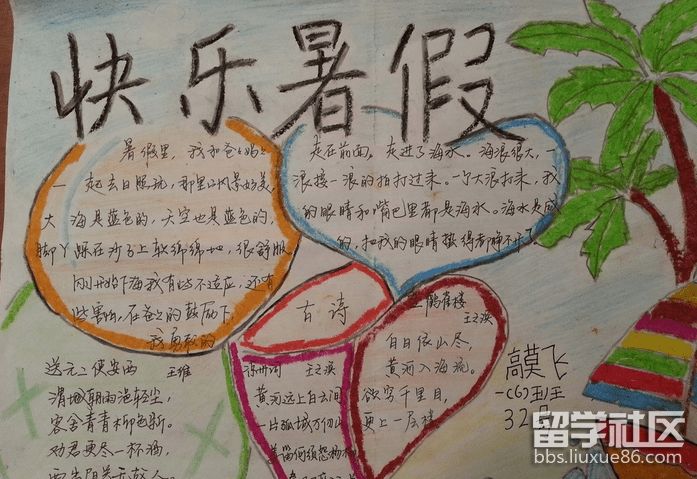 快乐暑假
暑假里，我和爸爸妈妈
一起去日照玩，那里的风景好美，
大海是蓝色的，天空也是蓝色的，
脚丫踩在沙子上软绵绵地，很舒服
刚开始下海我有些不适应，还有
些害怕，在爸爸的鼓励下，
我勇敢的
走在前面，走进了海水。海浪很大，一
浪接一浪的拍打过来。一个大浪打来，我
的眼睛和嘴巴里都是海水。海水是咸
的，把我的眼睛 得都睁不开了。
古诗
登鹳雀楼
王之涣
白日依山尽，
黄河入海流。
欲穷千里目，
更上一层楼
送元二使安西
王维
渭城朝雨浥轻尘，
客舍青青柳色新。
劝君更尽一杯酒，
西出阳关无故人
凉州词 王之涣
黄河远上白云间
一片孤城万仞山
羌笛何须怨杨柳
高莫飞
一(6)班
32号
留学社区
bbs.liuxue86.com